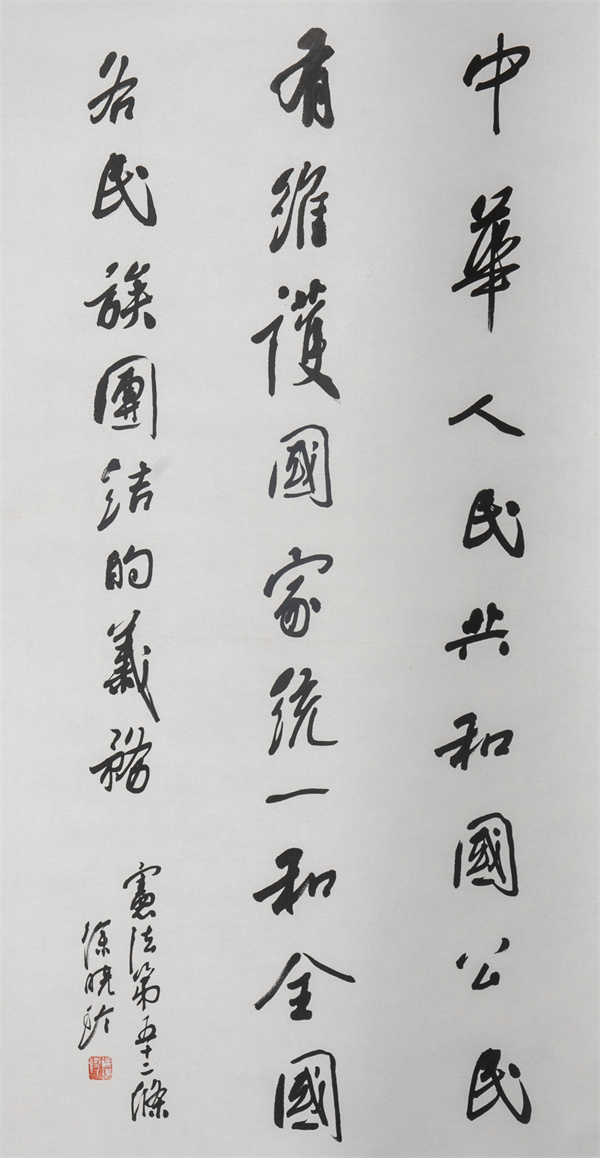 中華人民共和國公民
有維護國家統一和全國
各民族團结的義務
憲法第五十二條
徐曉